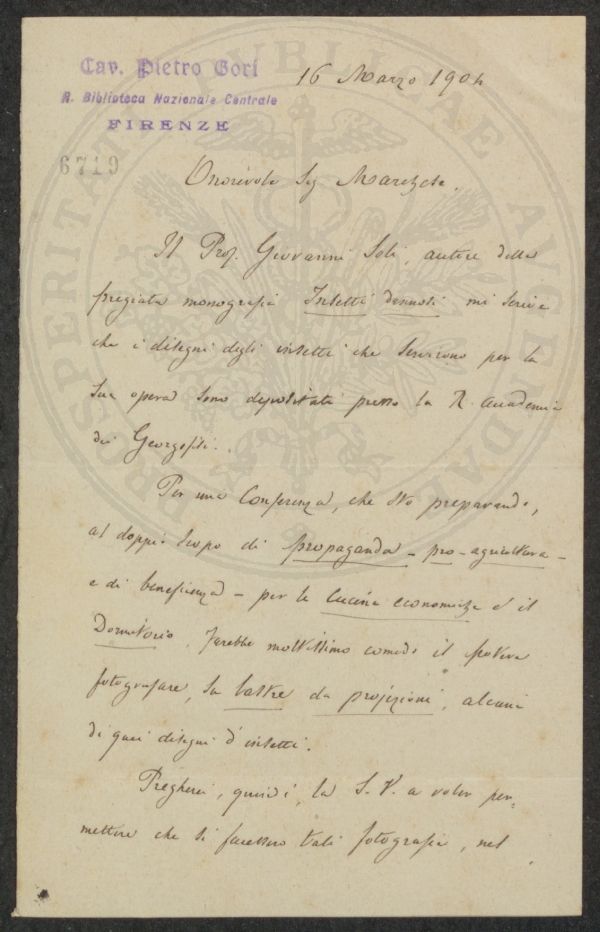 Cav. Pietro Gori
R. Biblioteca Nazionale Centrale
FIRENZE
16 Marzo 1904
6719
Onorevole Sig Marchese.
Il Prof. Giovanni Soli, autore della
pregiata monografia Insetti dannosi mi scrive
che i disegni degli insetti che servirono per la
sua opera sono depositati presso la R. Accademia
dei Georgofili.
Per una Conferenza, che sto preparando,
al doppio scopo di propaganda - pro - agricoltura -
e di beneficenza - per le Cucine economiche e il
Dormitorio, farebbe moltissimo comodo il potere
fotografare, su lastre da projezioni, alcuni
di quei disegni d'insetti.
Pregherei, quindi, la S. V. a voler per-
mettere che si facessero tali fotografie, nel
PROSPERITATI PVBLICAE AVGENDAE